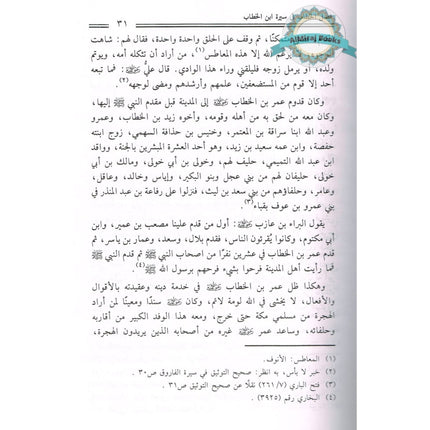 ٣١
في سيرة ابن الخطاب
متمكنًا، ثم وقف على الحلق واحدة واحدة، فقال لهم: شاهت
الله إلا هذه المعاطس(١)، من أراد أن تثكله أمه، ويوتم
ولده، أو يرمل زوجه فليلقني وراء هذا الوادي. قال علي رضي الله عنه: فما تبعه
أحد إلا قوم من المستضعفين، علمهم وأرشدهم ومضى لوجهه(٢).
وكان قدوم عمر بن الخطاب رضي الله عنه إلى المدينة قبل مقدم النبي ﷺ إليها،
وكان معه من لحق به من أهله وقومه، وأخوه زيد بن الخطاب، وعمرو
وعبد الله ابنا سراقة بن المعتمر، وخنيس بن حذافة السهمي، زوج ابنته
حفصة، وابن عمه سعيد بن زيد، وهو أحد العشرة المبشرين بالجنة، وواقد
ابن عبد الله التميمي، حليف لهم، وخولى بن أبي خولى، ومالك بن أبي
خولى، حليفان لهم من بني عجل وبنو البكير، وإياس وخالد، وعاقل،
وعامر، وحلفاؤهم من بني سعد بن ليث، فنزلوا على رفاعة بن عبد المنذر في
بني عمرو بن عوف بقباء(٣).
يقول البراء بن عازب رضي الله عنه: أول من قدم علينا مصعب بن عمير، وابن
أم مكتوم، وكانوا يُقرئون الناس، فقدم بلال، وسعد، وعمار بن ياسر، ثم
قدم عمر بن الخطاب في عشرين نفرًا من أصحاب النبي ﷺ ثم قدم النبي ﷺ
فما رأيت أهل المدينة فرحوا بشيء فرحهم برسول الله ﷺ(٤).
وهكذا ظل عمر رضي الله عنه في خدمة دينه وعقيدته بالأقوال
والأفعال، لا يخشى في الله لومة لائم، وكان رضي الله عنه سندًا ومعينًا لمن أراد
الهجرة من مسلمي مكة حتى خرج، ومعه هذا الوفد الكبير من أقاربه
وحلفائه، وساعد عمر رضي الله عنه غيره من أصحابه الذين يريدون الهجرة،
(١) المعاطس: الأنوف.
(٢) خبر لا بأس به، انظر: صحيح التوثيق في سيرة الفاروق ص٣٠.
(٣) فتح الباري (٧/٢٦١) نقلًا عن صحيح التوثيق ص٣١.
(٤) البخاري رقم (٣٩٢٥).